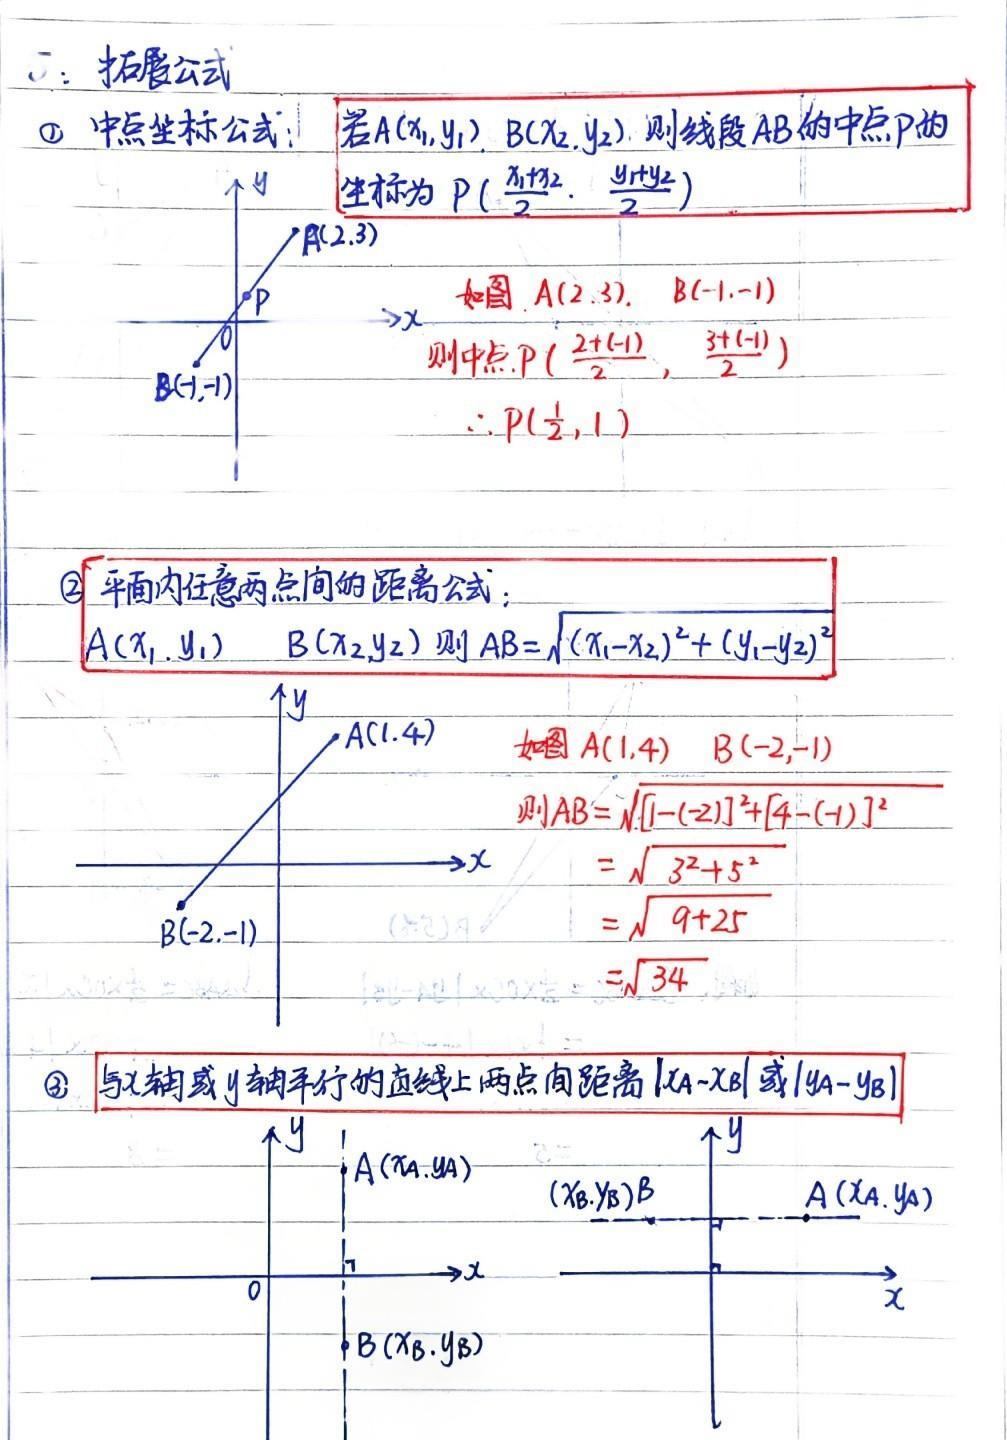 5: 拓展公式
① 中点坐标公式: 若A(x₁,y₁). B(x₂.y₂). 则线段AB的中点P的
坐标为 P((x₁+x₂)/2 . (y₁+y₂)/2)
y
A(2.3)
P
x
0
B(-1,-1)
如图 A(2.3). B(-1.-1)
则中点.P((2+(-1))/2 , (3+(-1))/2)
∴P(1/2, 1)
② 平面内任意两点间的距离公式:
A(x₁.y₁) B(x₂,y₂) 则 AB=√((x₁-x₂)²+(y₁-y₂)²)
y
A(1.4)
x
B(-2.-1)
如图 A(1,4) B(-2,-1)
则AB=√([1-(-2)]²+[4-(-1)]²)
=√(3²+5²)
=√(9+25)
=√34
③ 与x轴或y轴平行的直线上两点间距离|xA-xB|或|yA-yB|
y
A(xA.yA)
x
0
B(xB.yB)
y
(xB.yB)B
A(xA.yA)
x